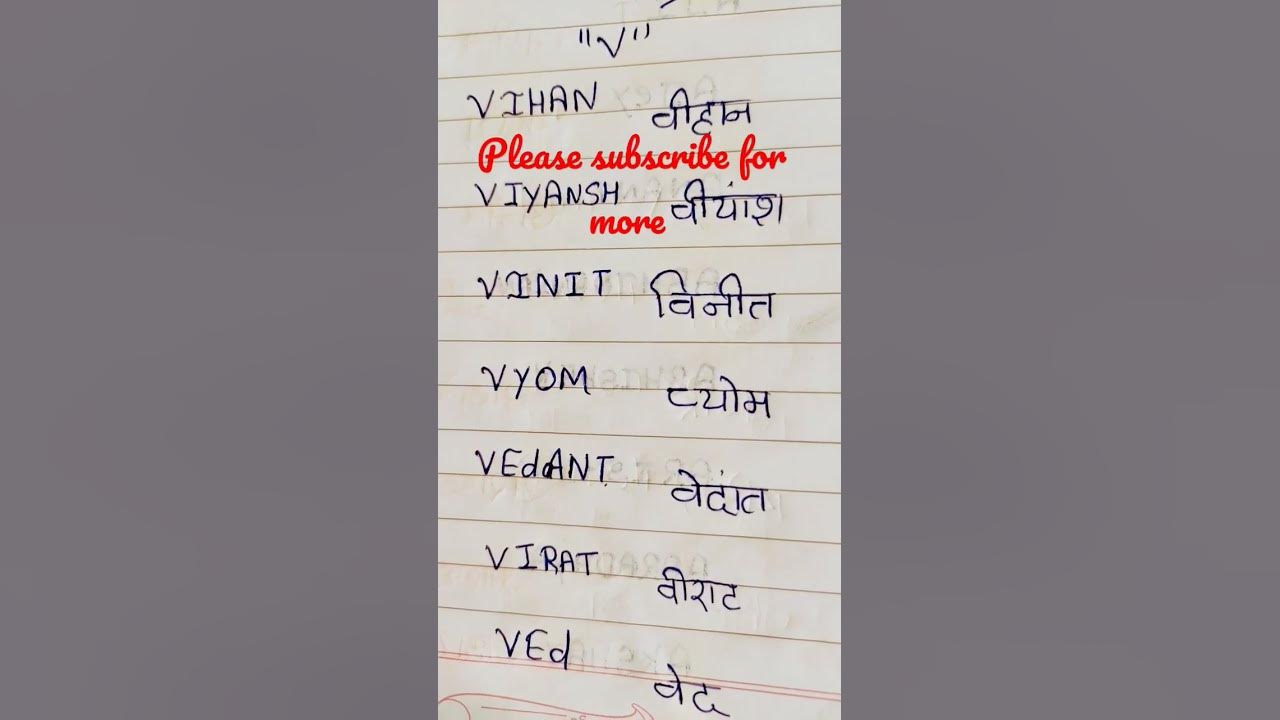 "V"
VIHAN वीहान
Please subscribe for
VIYANSH वीयांश
more
VINIT विनीत
VYOM व्योम
VEdANT वेदांत
VIRAT वीराट
VEd वेद